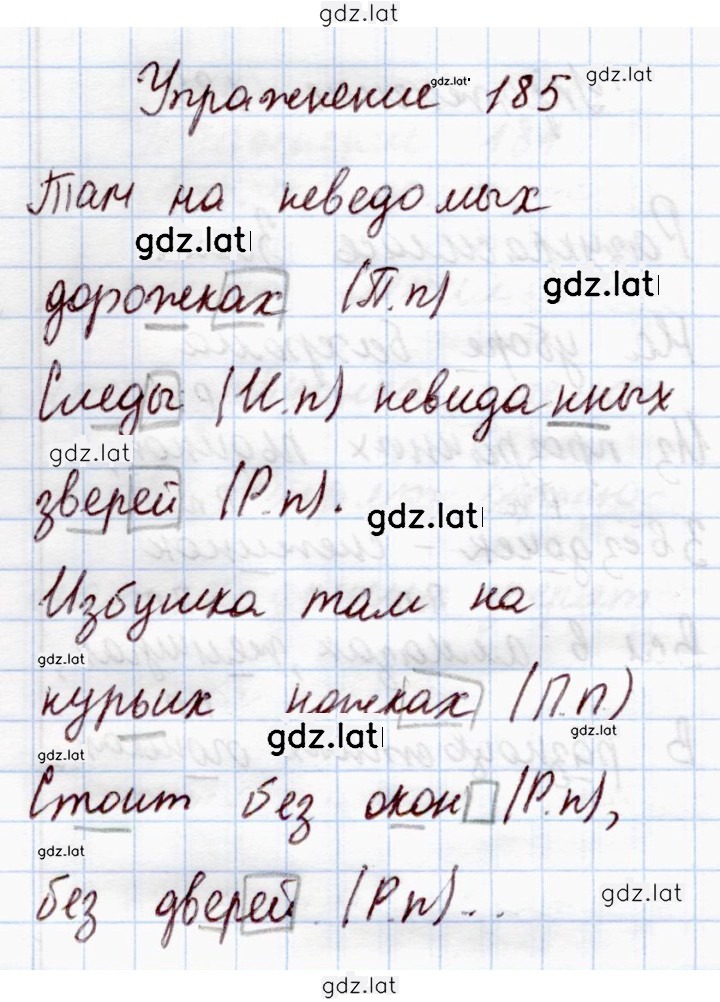 gdz.lat
Упражнение 185
gdz.lat
gdz.lat
Там на неведомых
gdz.lat
дорожках (П.п)
gdz.lat
Следы (И.п) невиданных
gdz.lat
зверей (Р.п).
gdz.lat
Избушка там на
gdz.lat
курьих ножках (П.п.)
gdz.lat
gdz.lat
gdz.lat
Стоит без окон (Р.п),
gdz.lat
без дверей (Р.п)...
gdz.lat
gdz.lat